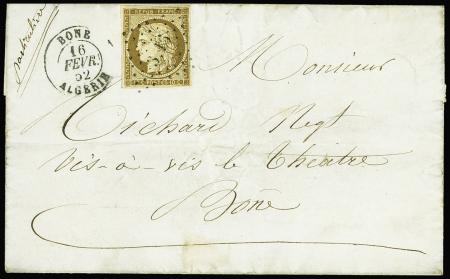 particulière
BONE
16
FEVR.
52
ALGERIE
REPUB. FRANC.
Monsieur
Richard Negt
vis-à-vis le Théatre
Bône